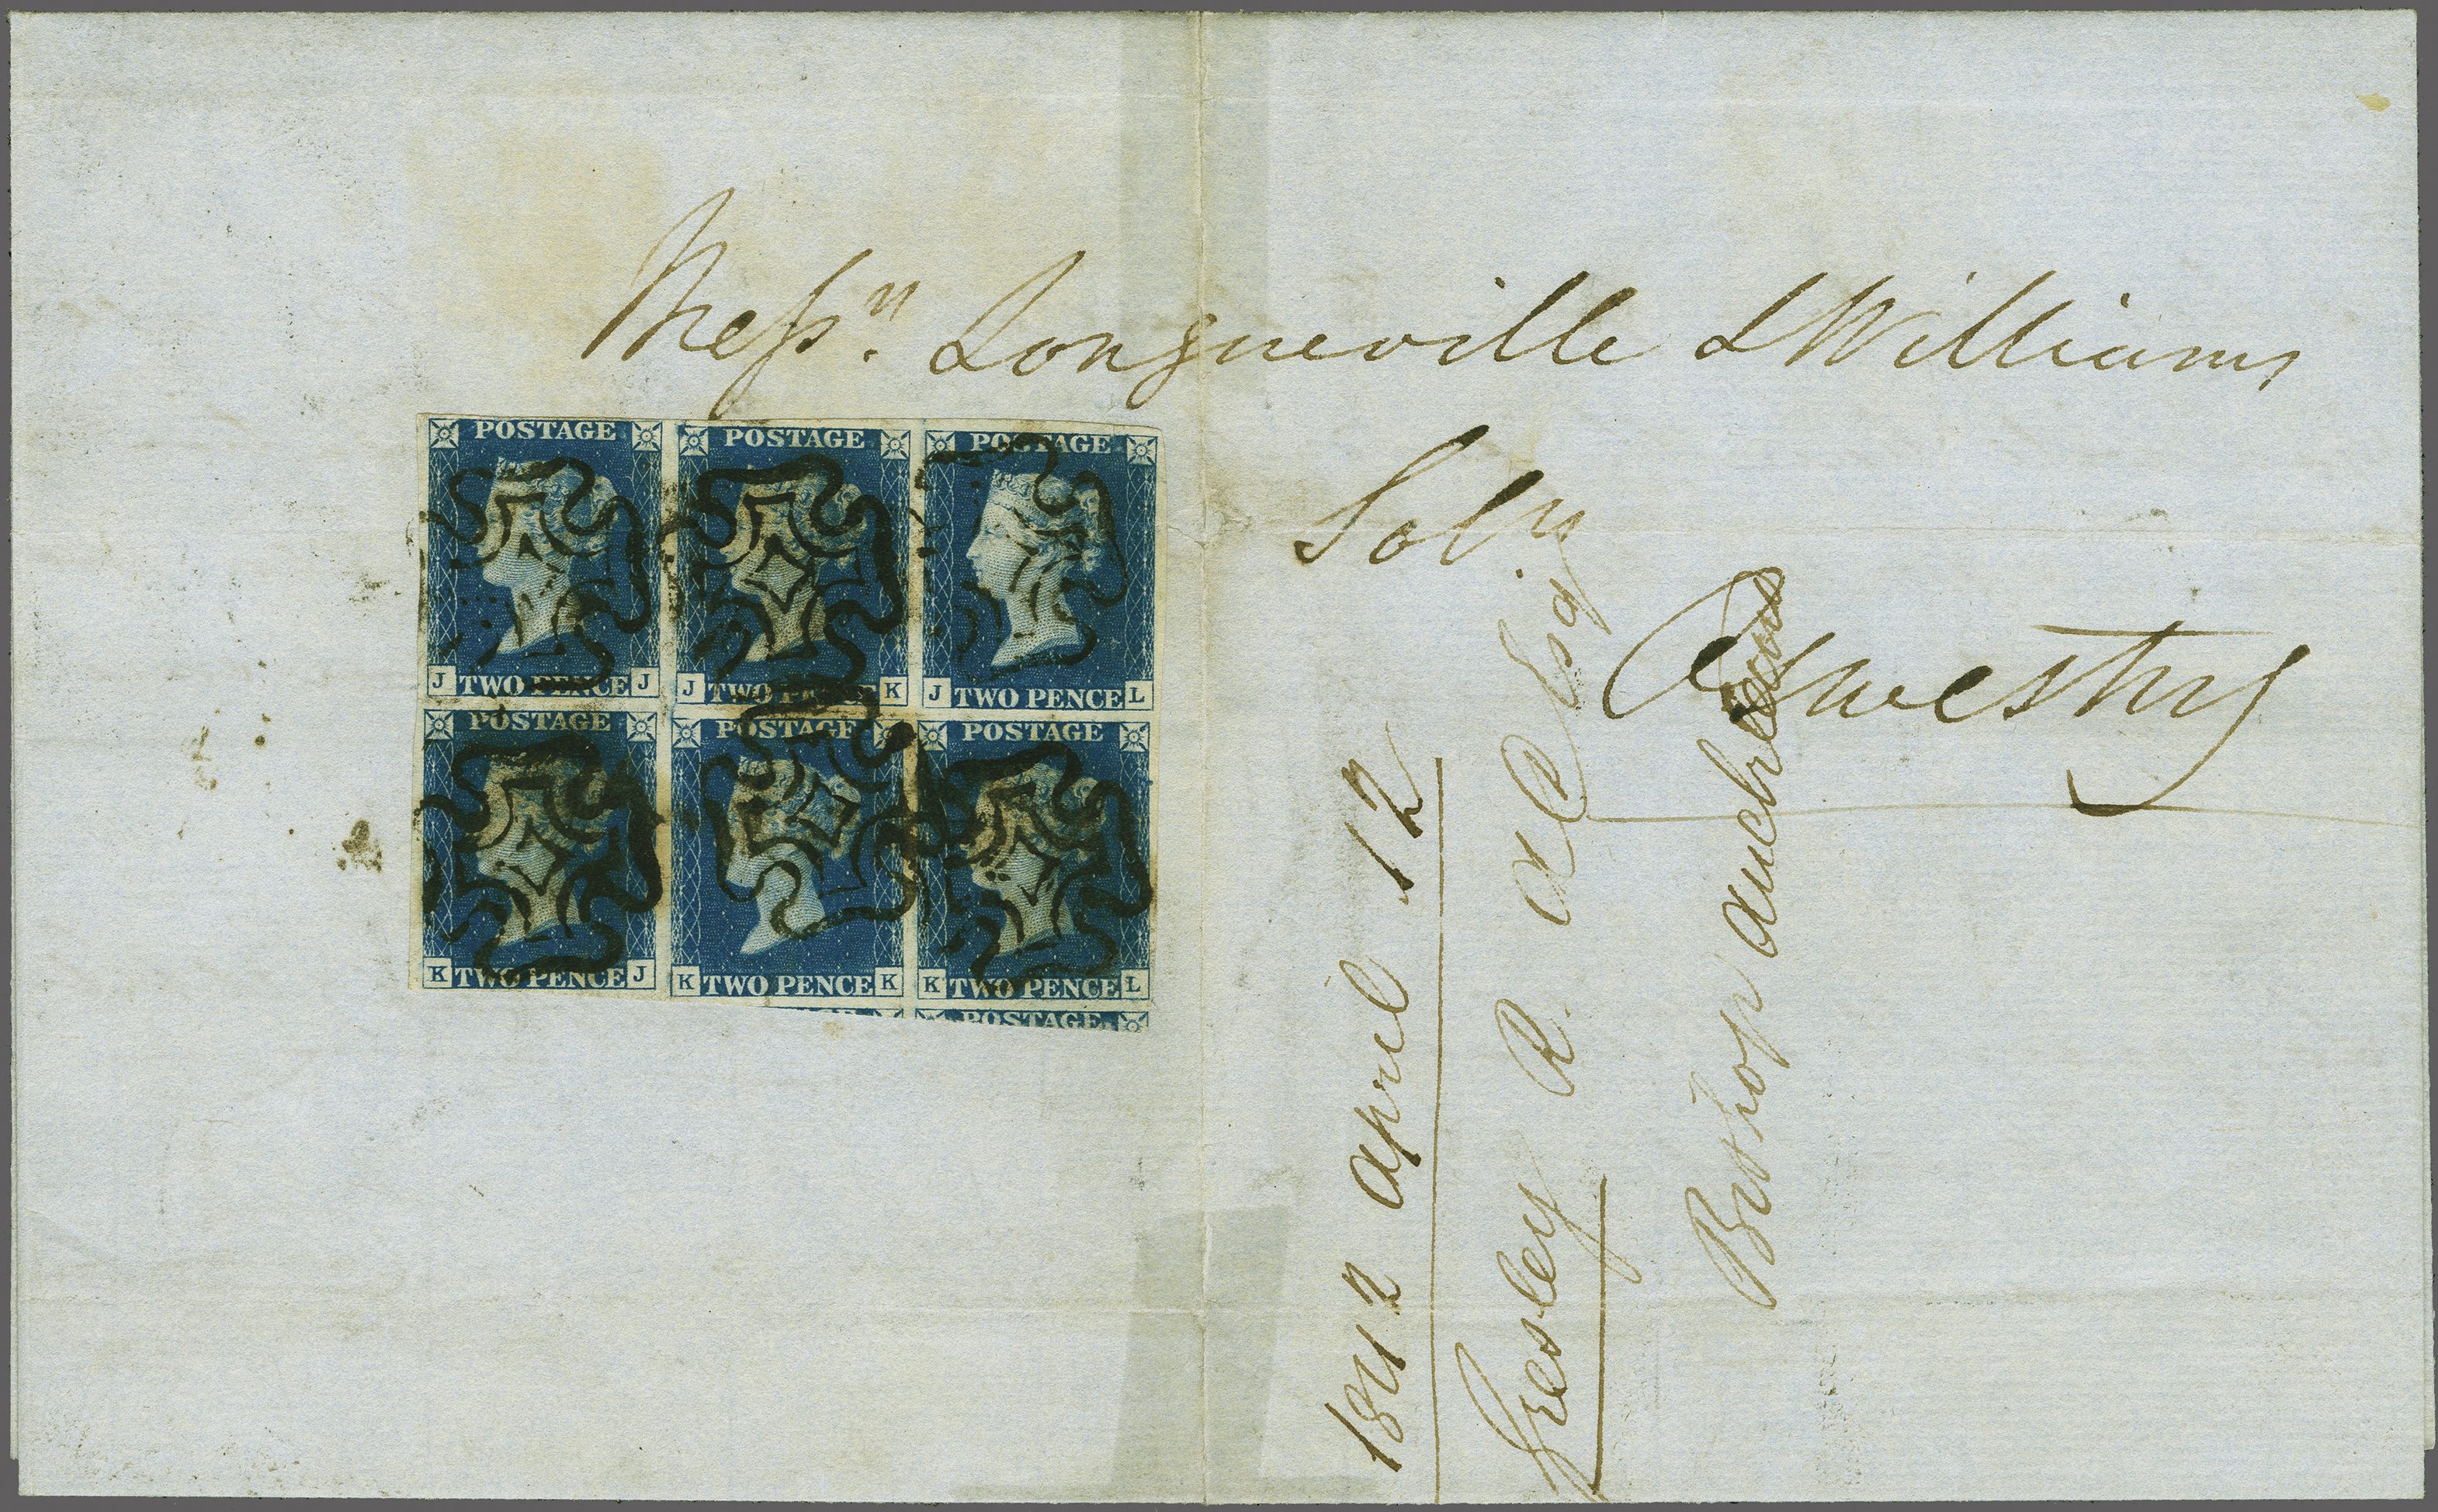 Messrs. Longueville & Williams
Solrs.
Oswestry
POSTAGE POSTAGE POSTAGE
J TWO PENCE J J TWO PENCE K J TWO PENCE L
POSTAGE POSTAGE POSTAGE
K TWO PENCE J K TWO PENCE K K TWO PENCE L
POSTAGE
1842 april 12
Gresley R. a C Esq
Bishop auckland